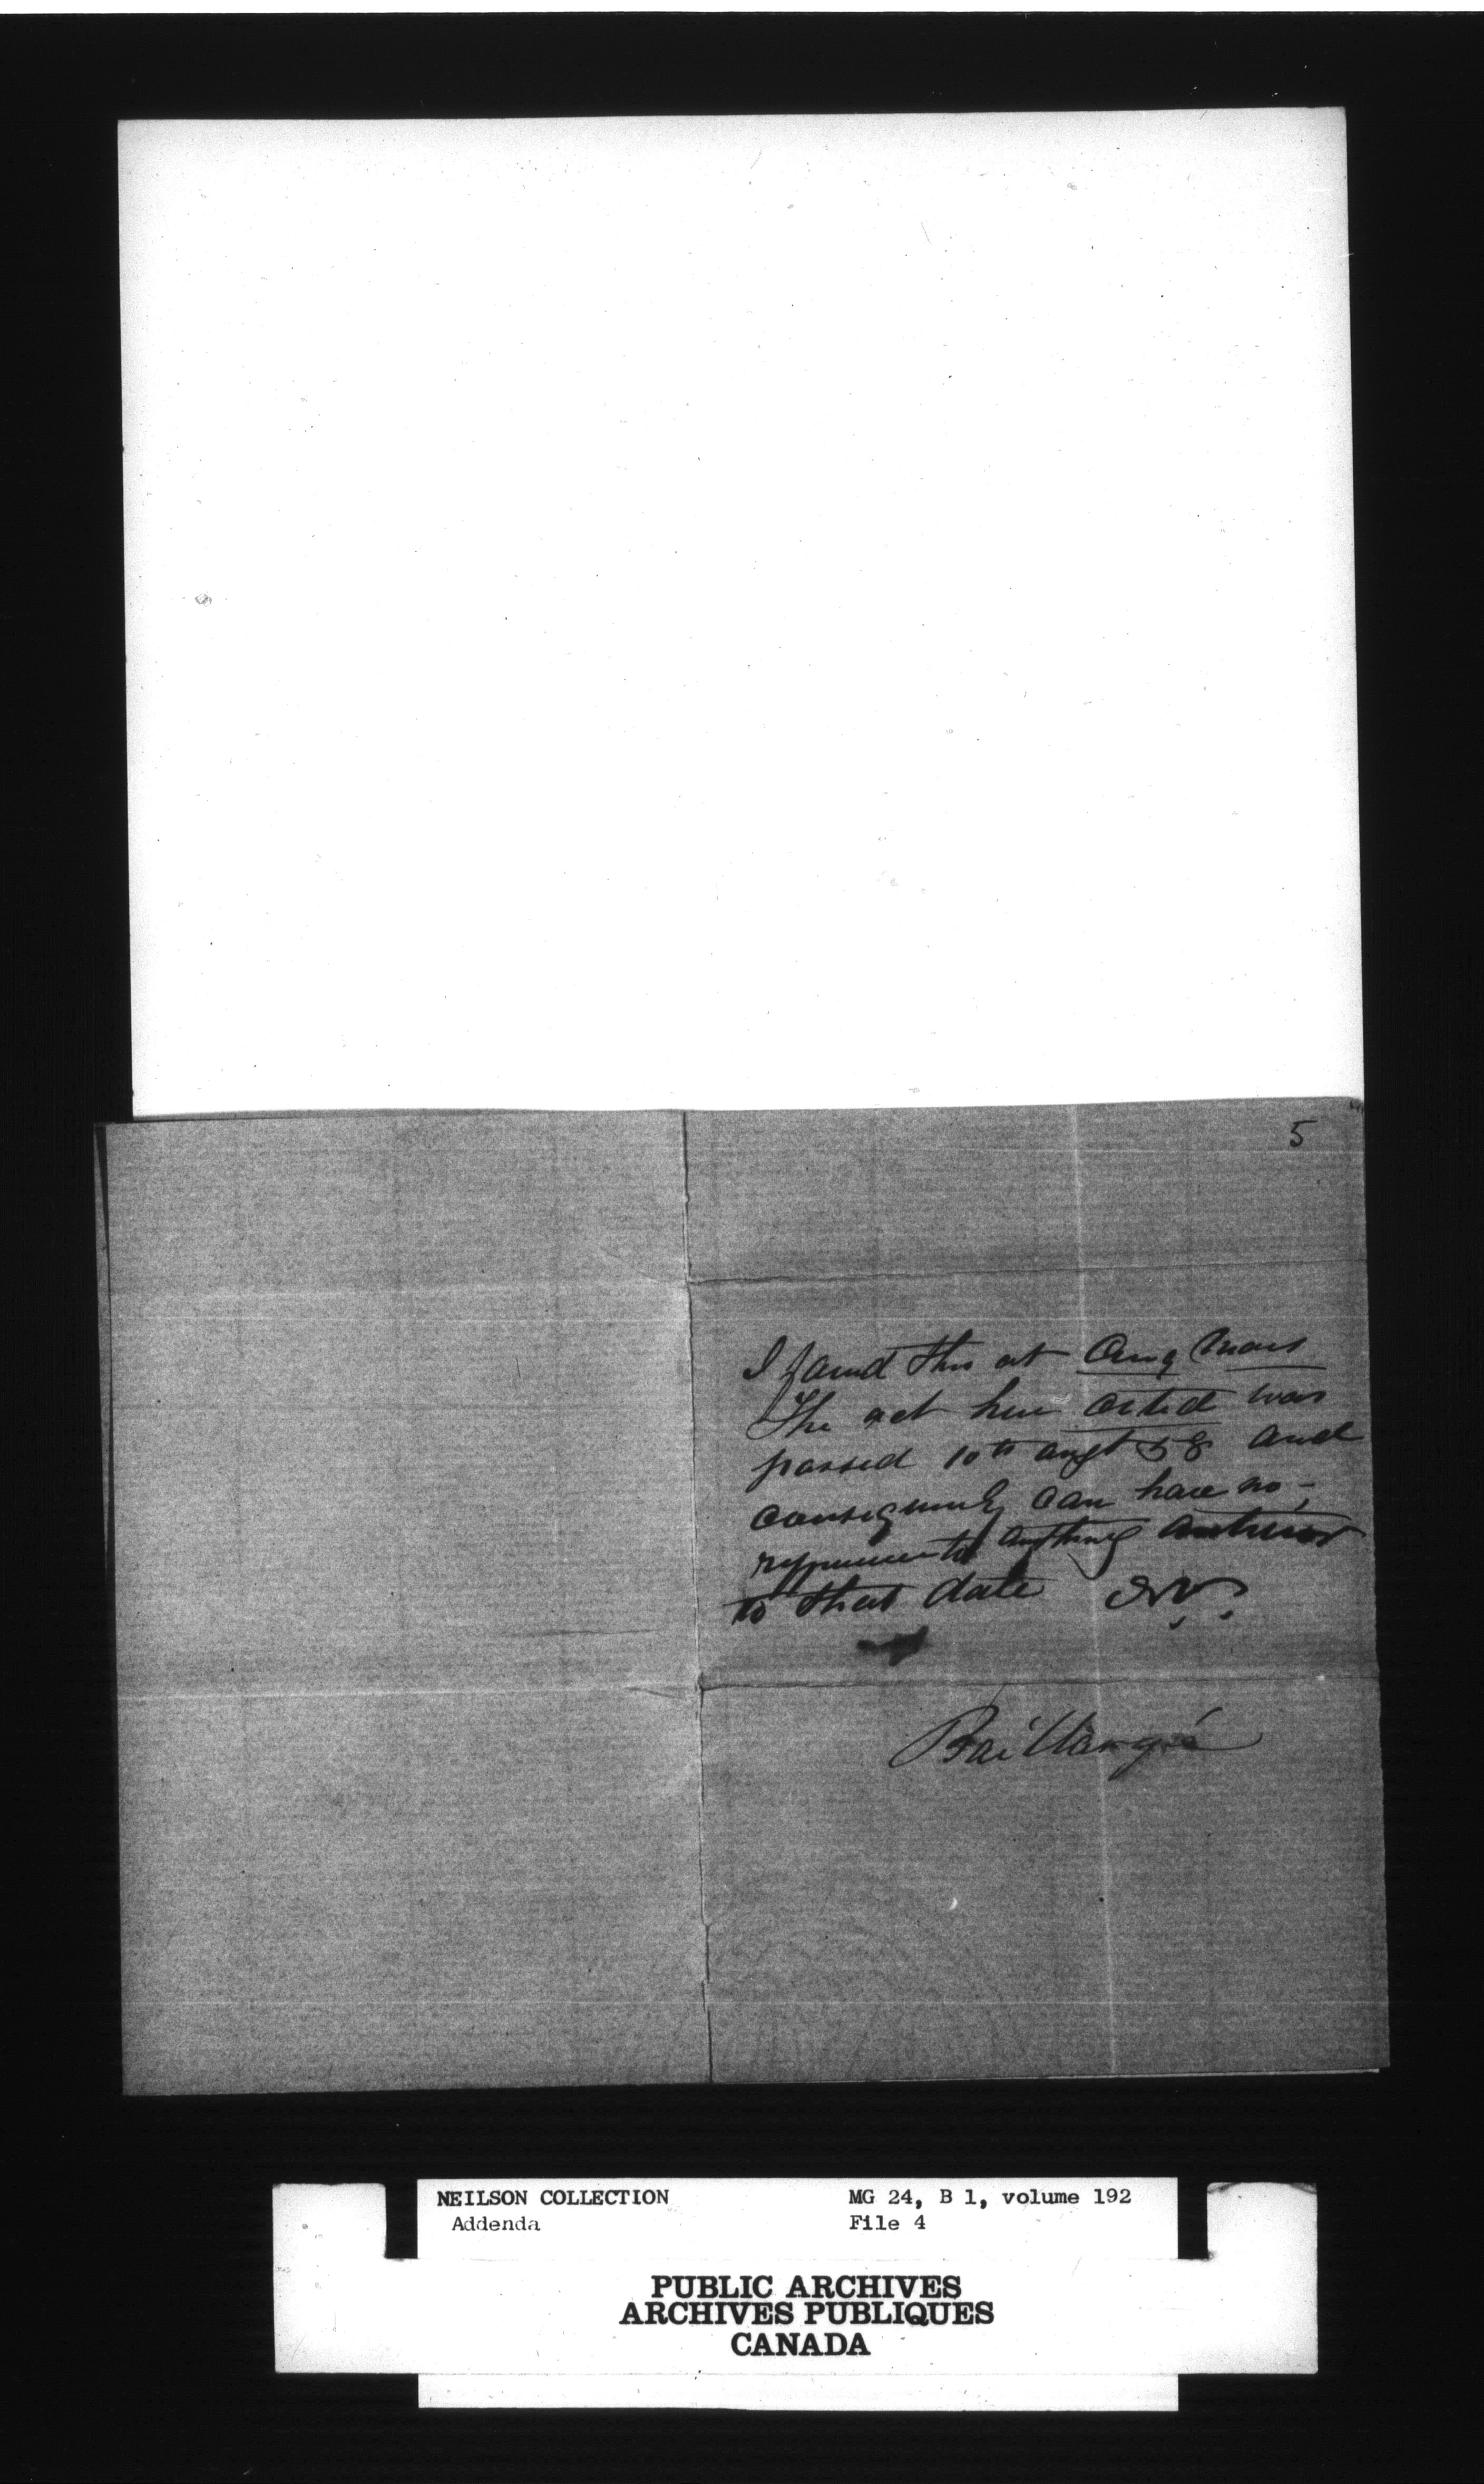 5
I found this at Cinq Mars
The act here cited was
passed 10th augt 58 and
consequently can have no
reference to anything anterior
to that date
Baillargé
NEILSON COLLECTION MG 24, B 1, volume 192
Addenda File 4
PUBLIC ARCHIVES
ARCHIVES PUBLIQUES
CANADA